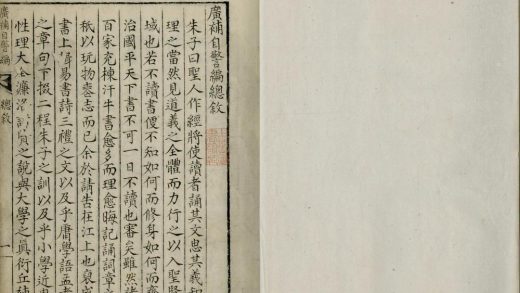 廣補自警編總敘
朱子曰聖人作經將使讀者誦其文思其義知
理之當然見道義之全體而力行之以入聖賢
域也若不讀書便不知如何而修身如何而齊
治國平天下書不可一日不讀也審矣雖然
百家充棟汗牛書愈多而理愈晦記誦詞章
秪以玩物喪志而已余於請告在江上也裒
書上揖易書詩三禮之文以及乎庸學語孟
之章句下掇二程朱子之訓以及乎小學近
性理大全濂洛諸賢之說與大學之眞衍丘
廣補自警編
總敘